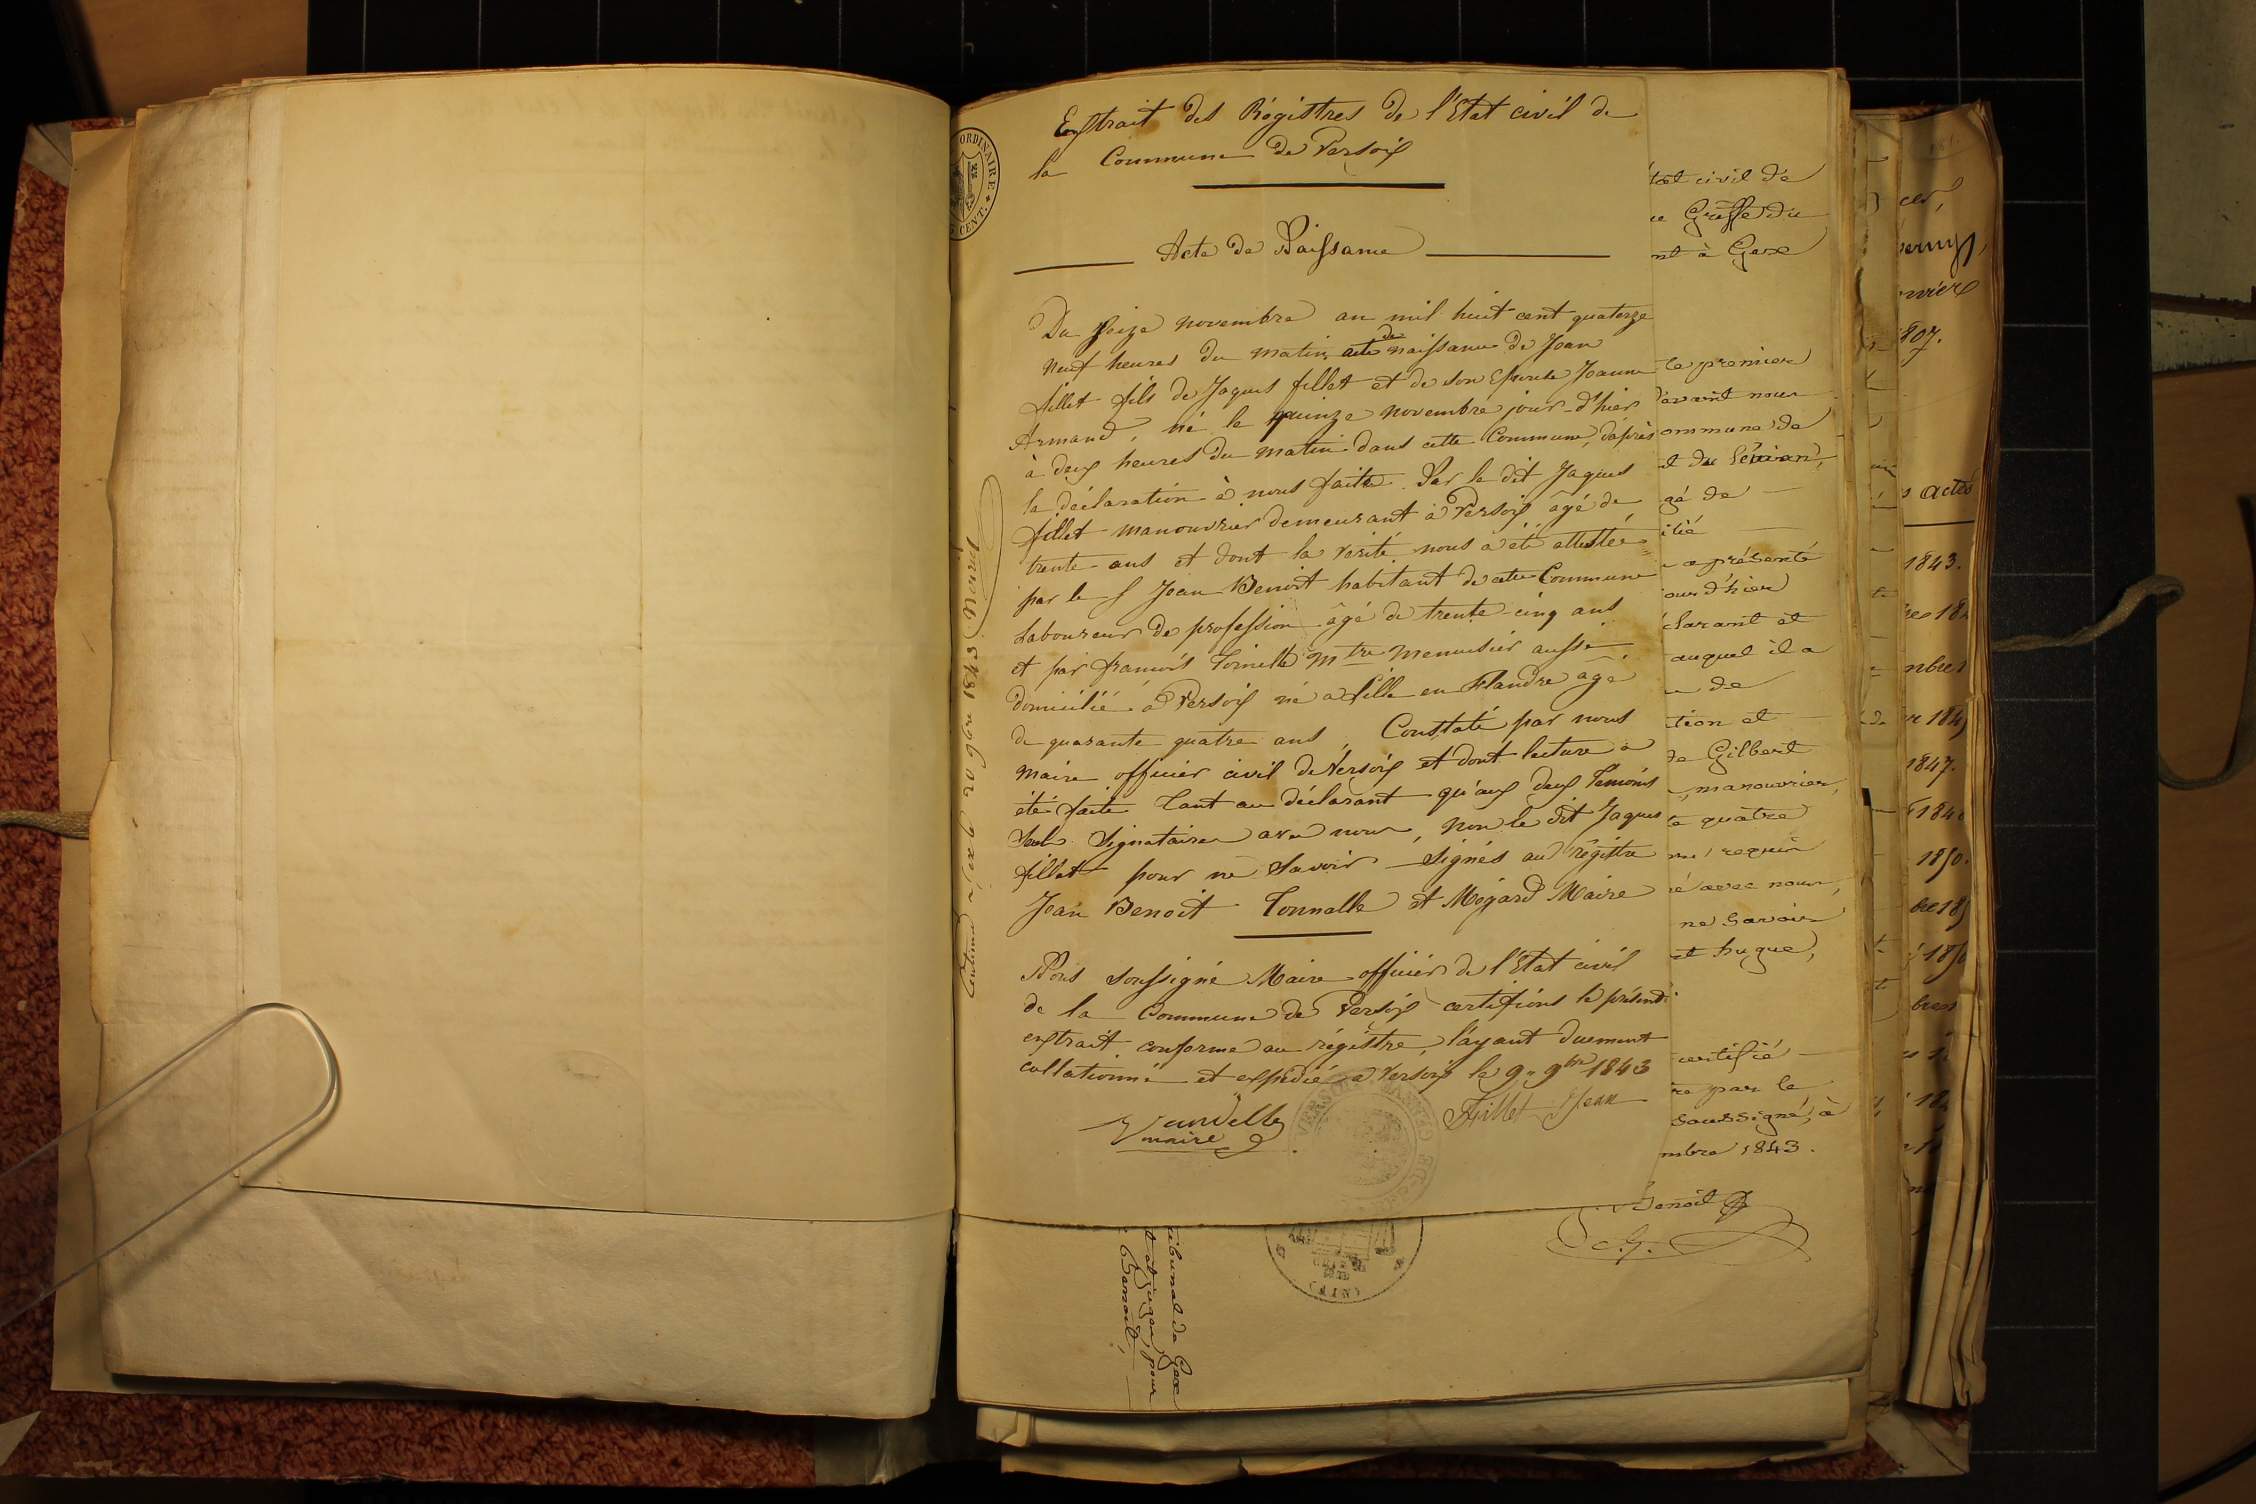 Extrait des Régistres de l'Etat civil de
la Commune de Versoix
Acte de Naissance
Du seize novembre an mil huit cent quatorze
neuf heures du matin acte de naissance de Jean
fillet fils de Jaques fillet et de son Epouse Jeanne
Armand, né le quinze novembre jour d'hier
à deux heures du matin dans cette Commune, d'après
la déclaration à nous faite. Par le dit Jaques
fillet manouvrier demeurant à Versoix âgé de
trente ans et dont la vérité nous a été attestée
par le S Jean Benoit habitant de cette Commune
Laboureur de profession âgé de trente-cinq ans
et par françois Tornelle Mtre Menuisier aussi
domicilié à Versoix né a Lille en Flandre âgé
de quarante quatre ans Constaté par nous
maire officier civil de Versoix et dont lecture a
été faite tant au déclarant qu'aux deux temoins
seuls signataires avec nous, non le dit Jaques
fillet pour ne savoir signés au régistre
Jean Benoit Tonnalle et Mégard Maire
Nous soussigné Maire officier de l'Etat civil
de la Commune de Versoix certifions le présent
extrait conforme au régistre, l'ayant duement
collationné et expédié à Versoix le 9. 9bre 1843
Vandelle
maire
Fillet Jean
ORDINAIRE
CENT.
tat civil de
Greffe du
nt à Gex
le premier
devant nous
ommune de
gé de
ilié
a présenté
jour d'hier
clarant et
auquel il a
de
tion et
de Gilbert
manouvrier,
quatre
requis
é avec nous,
ne savoir
et hugue,
certifié
re par le
soussigné, à
mbre 1843.
Benoit
ribunal de Gex
pour
(AIN)
1807.
actes
1843.
1847.
1850.